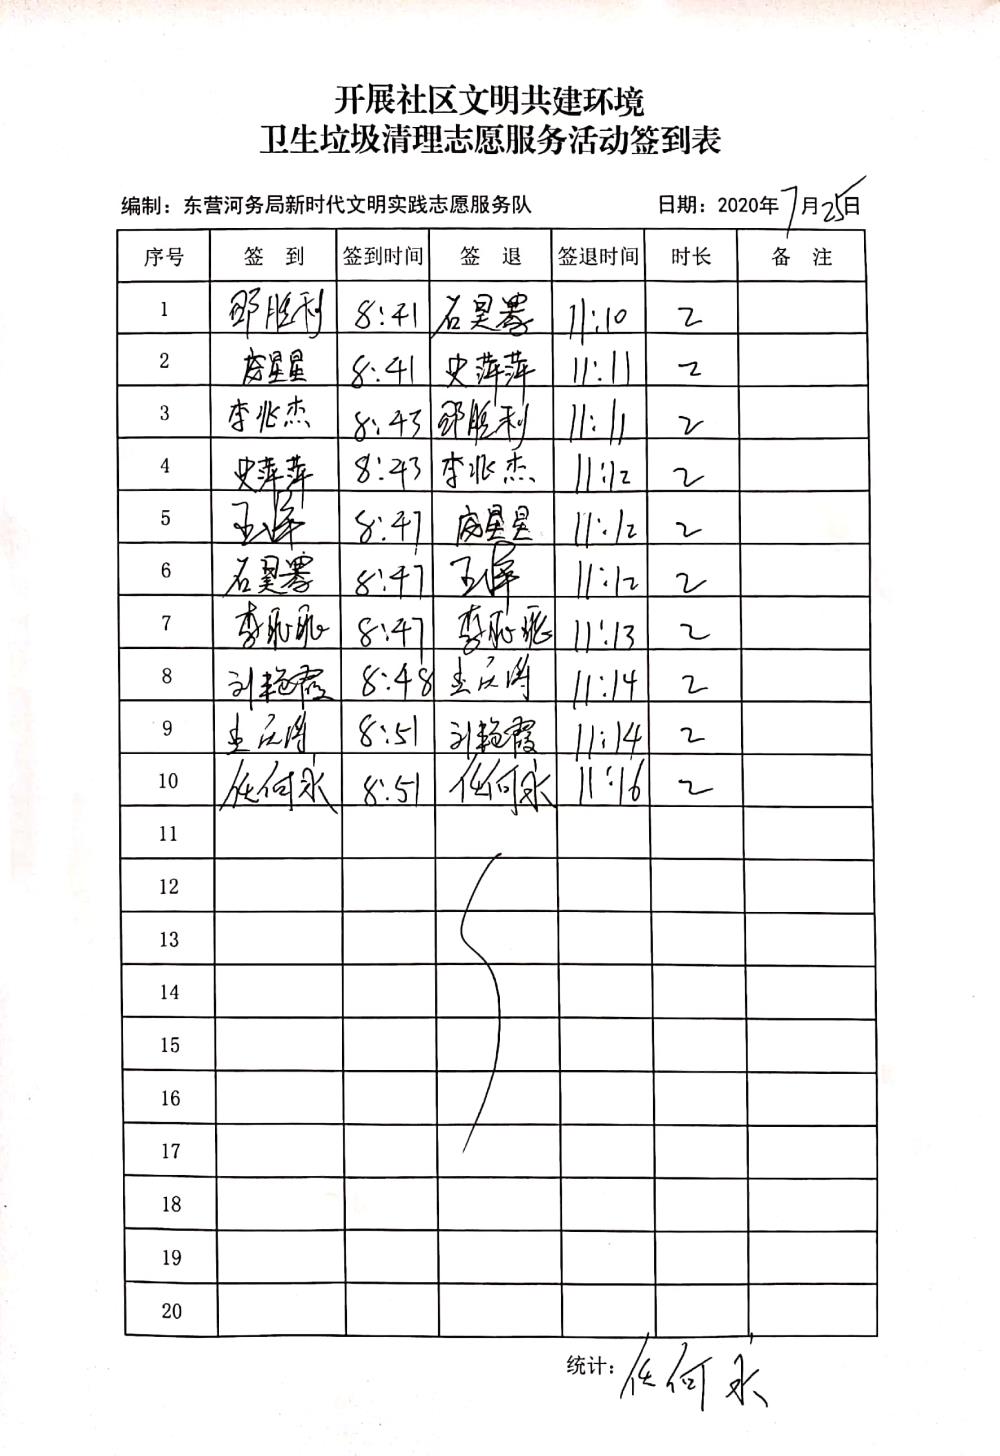 开展社区文明共建环境
卫生垃圾清理志愿服务活动签到表
编制：东营河务局新时代文明实践志愿服务队 日期：2020年7月25日
序号 签 到 签到时间 签 退 签退时间 时长 备 注
1 邵胜利 8:41 石昊 11:10 2
2 房星星 8:41 史萍萍 11:11 2
3 李兆杰 8:43 邵胜利 11:11 2
4 史萍萍 8:43 李兆杰 11:12 2
5 王 8:47 房星星 11:12 2
6 石昊 8:47 王 11:12 2
7 李 8:47 李 11:13 2
8 刘艳霞 8:48 11:14 2
9 8:51 刘艳霞 11:14 2
10 任何永 8:51 任何永 11:16 2
11
12
13
14
15
16
17
18
19
20
统计：任何永